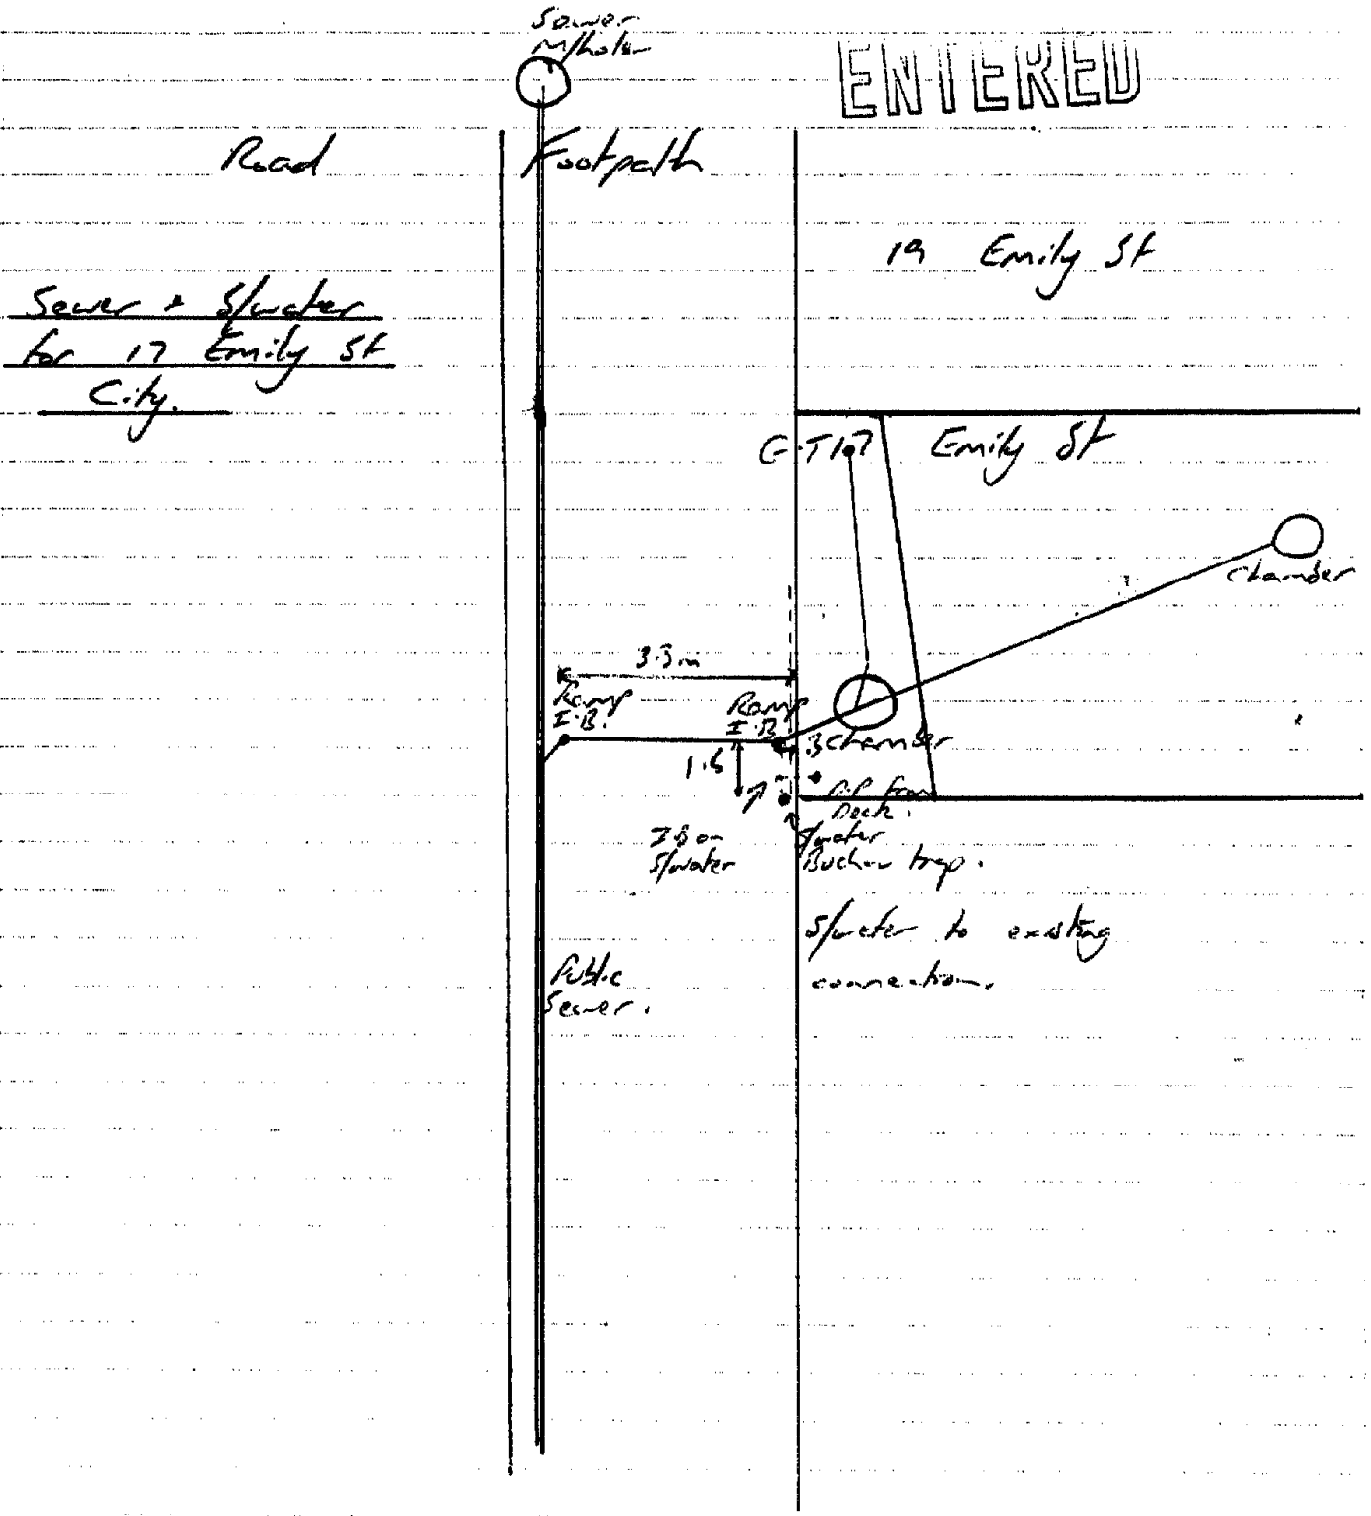 Sewer
M/hole
ENTERED
Road
Footpath
19 Emily St
Sewer + S/water
for 17 Emily St
City.
G-T 17 Emily St
chamber
3.3m
Ramp
I.B.
Ramp
I.B
.3 chamber
1.6
D.P from
Deck.
I.B on
S/water
S/water
Bucher trap.
S/water to existing
connection.
Public
Sewer.